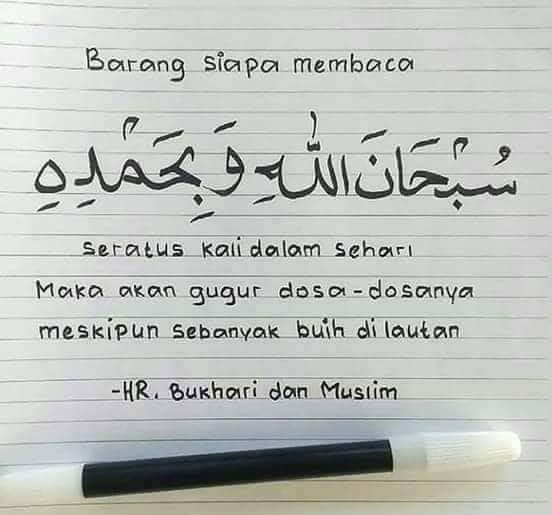 Barang siapa membaca
سُبْحَانَ اللّٰهِ وَبِحَمْدِهِ
seratus kali dalam sehari
Maka akan gugur dosa-dosanya
meskipun sebanyak buih di lautan
-HR. Bukhari dan Muslim